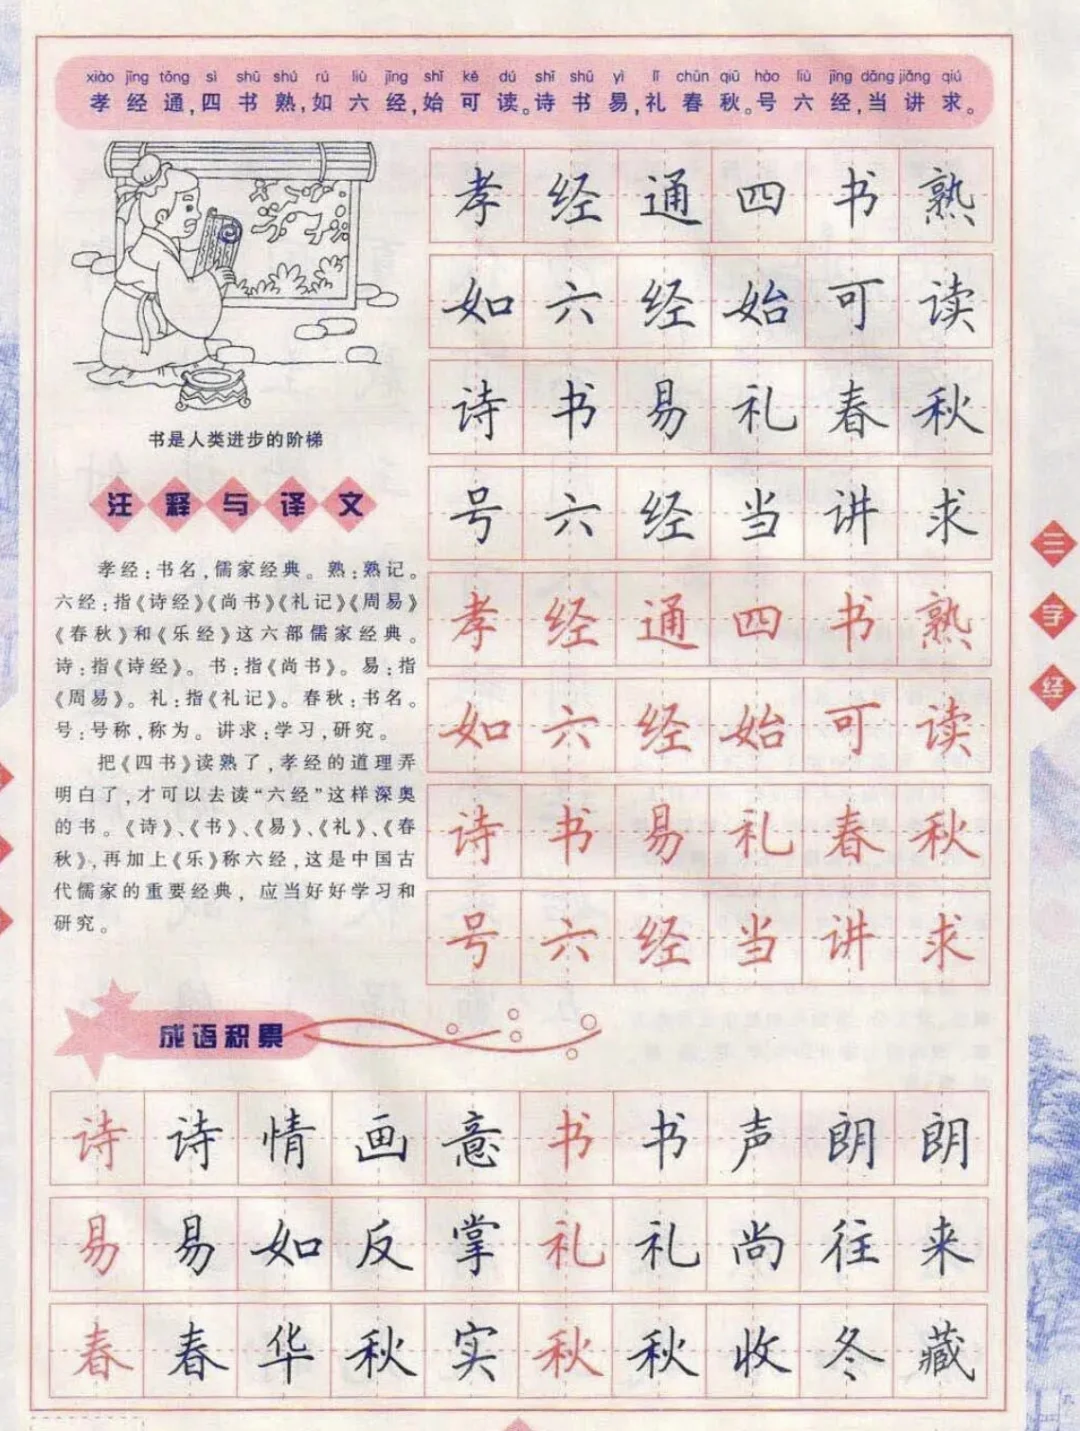 xiào jīng tōng sì shū shú rú liù jīng shǐ kě dú shī shū yì lǐ chūn qiū hào liù jīng dāng jiǎng qiú
孝经通,四书熟,如六经,始可读。诗书易,礼春秋。号六经,当讲求。
孝经通四书熟
如六经始可读
诗书易礼春秋
号六经当讲求
孝经通四书熟
如六经始可读
诗书易礼春秋
号六经当讲求
书是人类进步的阶梯
注释与译文
孝经:书名,儒家经典。熟:熟记。
六经:指《诗经》《尚书》《礼记》《周易》
《春秋》和《乐经》这六部儒家经典。
诗:指《诗经》。书:指《尚书》。易:指
《周易》。礼:指《礼记》。春秋:书名。
号:号称,称为。讲求:学习,研究。
把《四书》读熟了,孝经的道理弄
明白了,才可以去读“六经”这样深奥
的书。《诗》、《书》、《易》、《礼》、《春
秋》,再加上《乐》称六经,这是中国古
代儒家的重要经典,应当好好学习和
研究。
三字经
成语积累
诗诗情画意书书声朗朗
易易如反掌礼礼尚往来
春春华秋实秋秋收冬藏